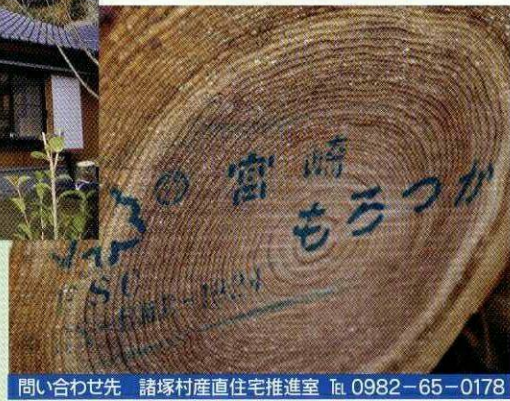 宮崎
もろつか
FSC
問い合わせ先　諸塚村産直住宅推進室 ℡ 0982－65－0178